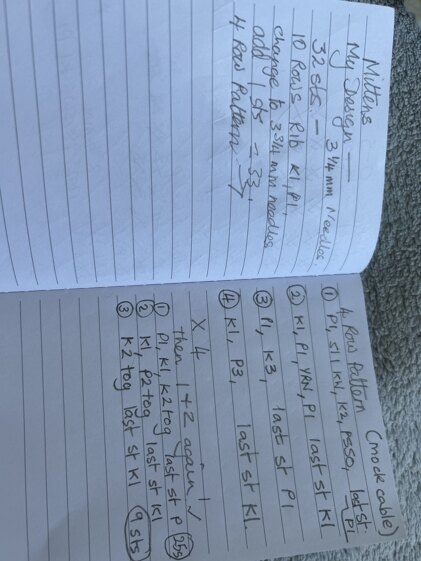 Mittens
My Design —
32 sts — 3 1/4 mm Needles
10 Rows Rib K1, P1,
change to 3 3/4 mm needles
add 1 sts = 33,
4 Row Pattern →
4 Row Pattern (mock cable)
① P1, Sl 1 KN, K2, PSSO, last st P1
② K1, P1, YRN, P1 last st K1
③ P1, K3, last st P1
④ K1, P3, last st K1.
X 4
then 1 + 2 again ✓
① P1, K1, K2 tog last st P (25s)
② K1, P2 tog last st K1
③ K2 tog last st K1 (9 sts)